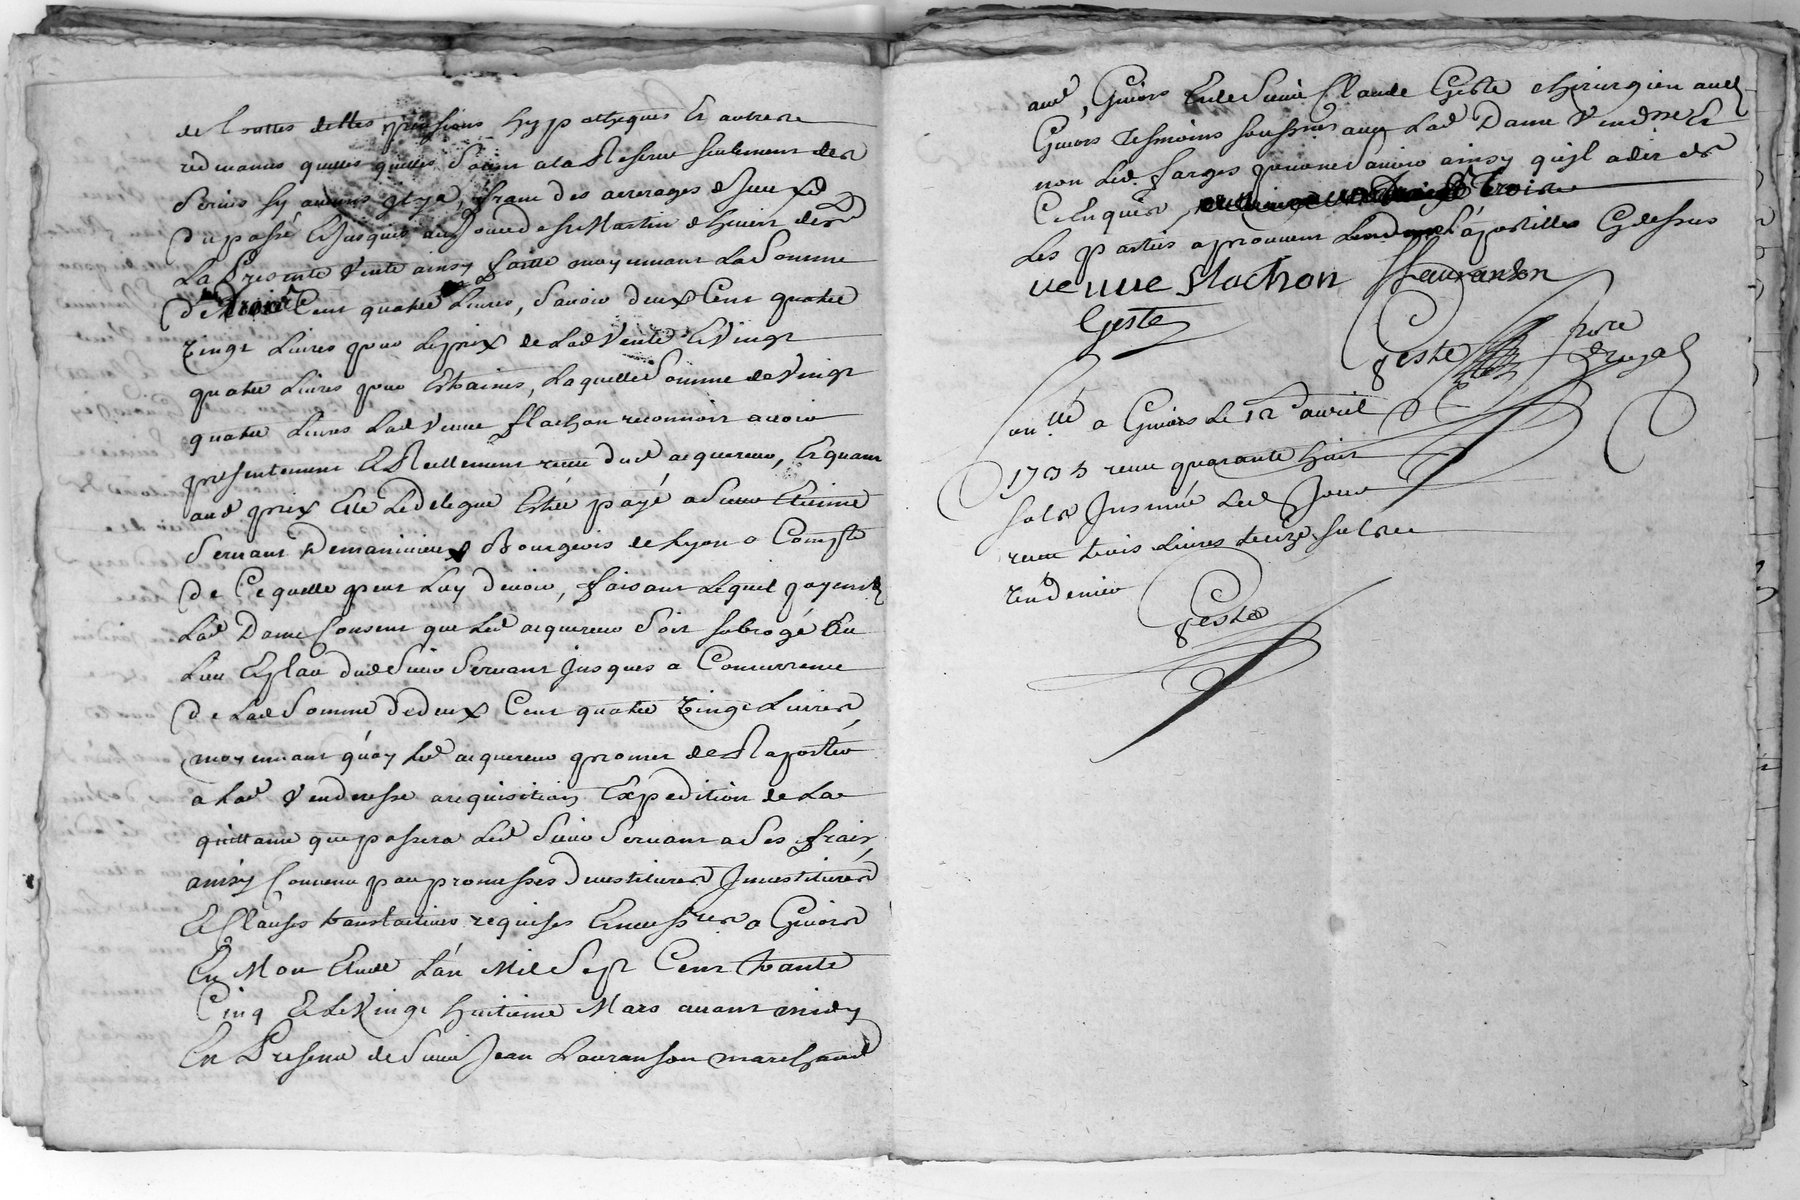 de touttes dettes pensions hypotheques Et autres
redevances quelles quelles soient a la Reserve seulement des
servis sy aucuns il y a, franc des arrerages d'iceux
du passé Et jusques au jour de st Martin d'hiver der
La Presente Vente ainsy faitte moyennant La Somme
de trois Cent quatre Livres, Savoir deux Cent quatre
vingt Livres pour Le prix de Lad Vente Et Vingt
quatre Livres pour Estraines, Laquelle Somme de Vingt
quatre Livres Lad Veuve flachon reconnoit avoir
presentement Et Reellement receu dud acquereur, Et quant
aud prix Elle Le delegue Estre payé a Sieur Etienne
Servant Bourgeois de Lyon a Compte
de Ce quelle peut Luy devoir, faisant Lequel payement
Lad Dame Consent que Led acquereur Soit subrogé Au
Lieu Et place dud Sieur Servant jusques a Concurrence
de Lad Somme de deux Cent quatre vingt Livres,
moyennant quoy Led acquereur promet de Raporter
a Lad Venderesse acquisition Expedition de La
quittance que passera Led Sieur Servant a Ses frais,
ainsy Convenu par promesses devestitures Investitures
Et Clauses translatives requises Et necessres a Givors
En Mon Etude L'an Mil Sept Cent trante
Cinq Et Le Vingt huitieme Mars avant midy
En Presence de Sieur Jean Lauranson marchand
aud Givors Et de Sieur Claude Geste chirurgien aud
Givors tesmoins soussignés avec Lad Dame Vendresse Et
non Led farges pour ne Savoir ainsy qu'il a dit de
Ce Enquis
Les parties aprouvent L'apostille Cy dessus
veuve flachon Lauranson
Geste
Geste nore Royal
Con llé a Givors Le 12 avril
1735 receu quarante huit
sols Insinué Led Jour
receu trois Livres treize sols
un denier
Geste